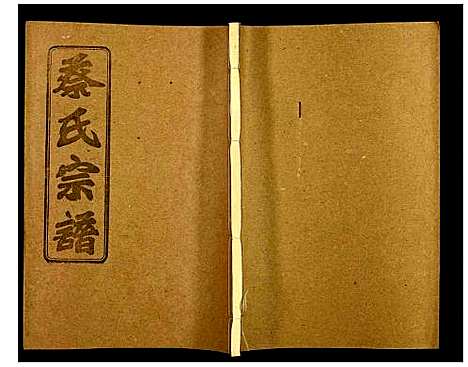 蔡氏宗譜